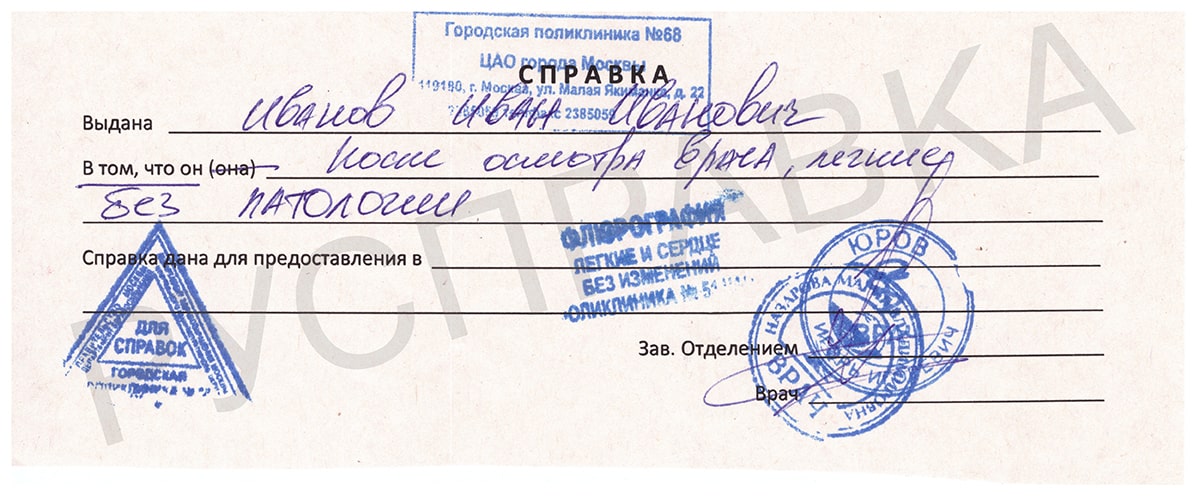 Городская поликлиника №68
ЦАО города Москвы
СПРАВКА
119180, г. Москва, ул. Малая Якиманка, д. 22
2385059
Выдана Иванов Иван Иванович
В том, что он (она) после осмотра врача, легкие
без патологии
ФЛЮРОГРАФИЯ
ЛЕГКИЕ И СЕРДЦЕ
БЕЗ ИЗМЕНЕНИЙ
ОЛИКЛИНИКА № 51
Справка дана для предоставления в
ДЛЯ
СПРАВОК
ГОРОДСКАЯ
Зав. Отделением
Врач
ЮРОВ
НАЗАРОВА
ВРАЧ
РУСПРАВКА